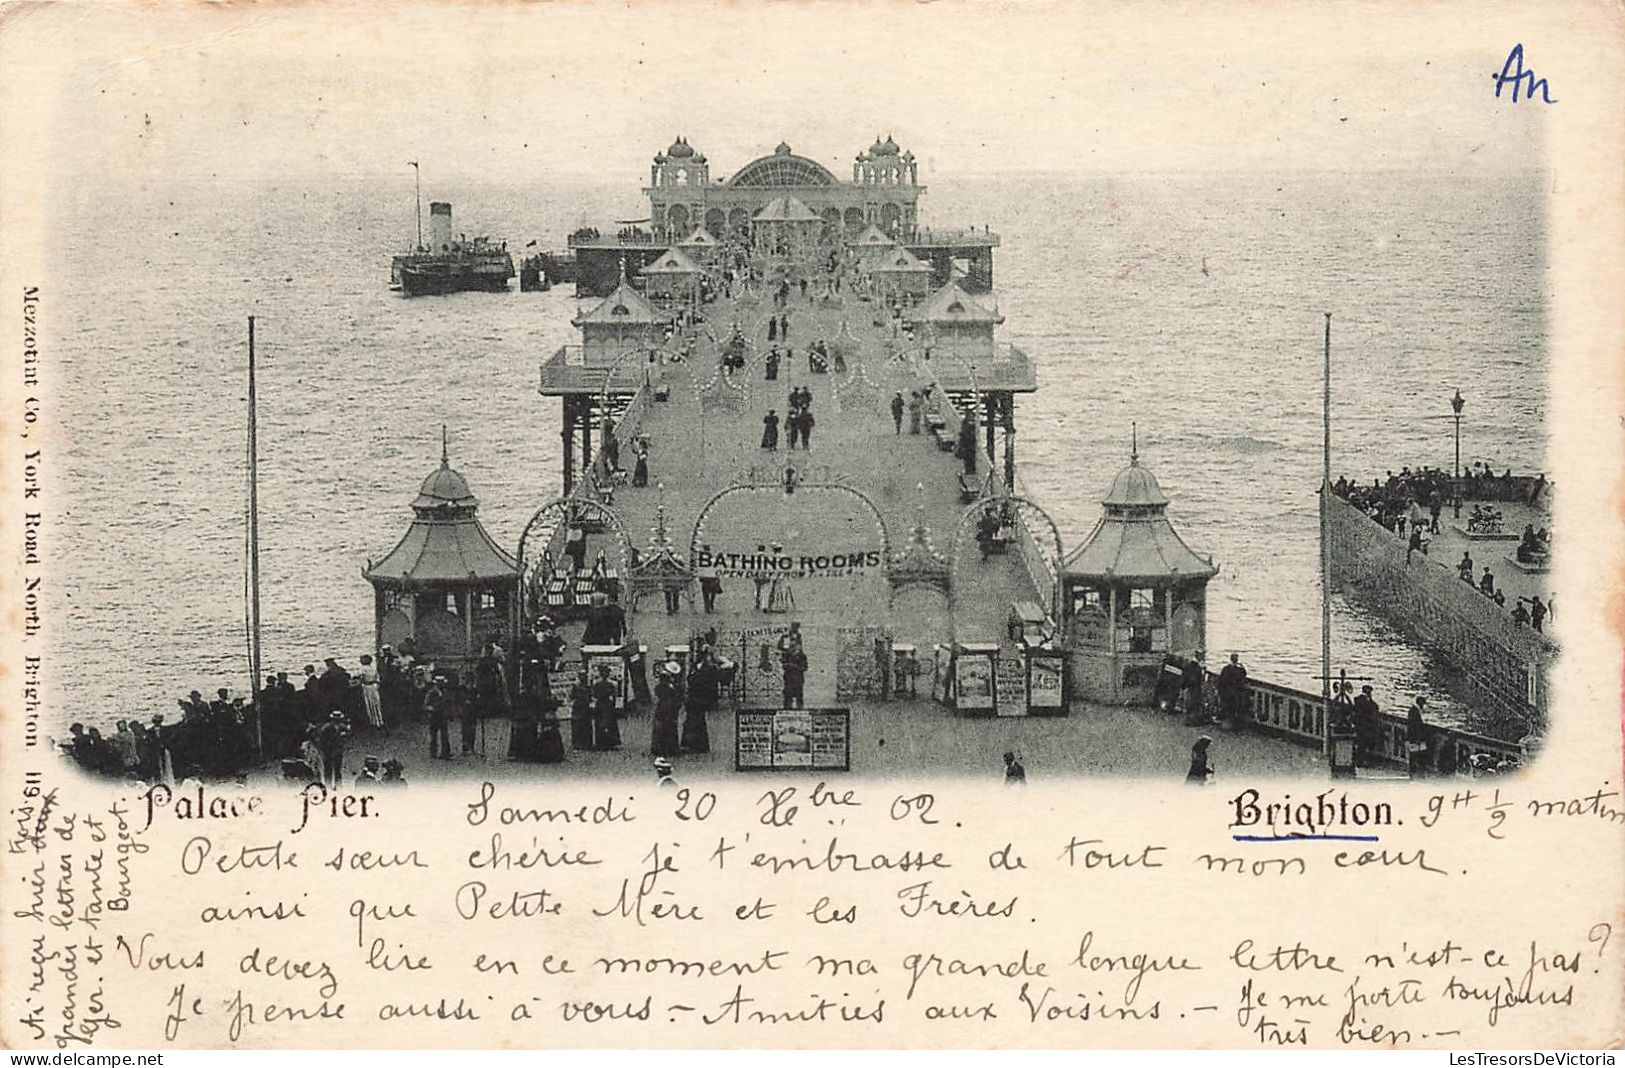 An
BATHING ROOMS
OPEN DAILY FROM
Mezzotint Co., York Road North, Brighton 119
Palace Pier.
Samedi 20 Xbre 02.
Brighton.
9H ½ matin
Petite sœur chérie je t'embrasse de tout mon cœur.
ainsi que Petite Mère et les Frères.
Vous devez lire en ce moment ma grande longue lettre n'est-ce pas?
Je pense aussi à vous - Amitiés aux Voisins. - Je me porte toujours
très bien. -
Ai reçu hier deux trois
grandes lettres de
Ger. et tante et
Bourgeot.
LesTresorsDeVictoria